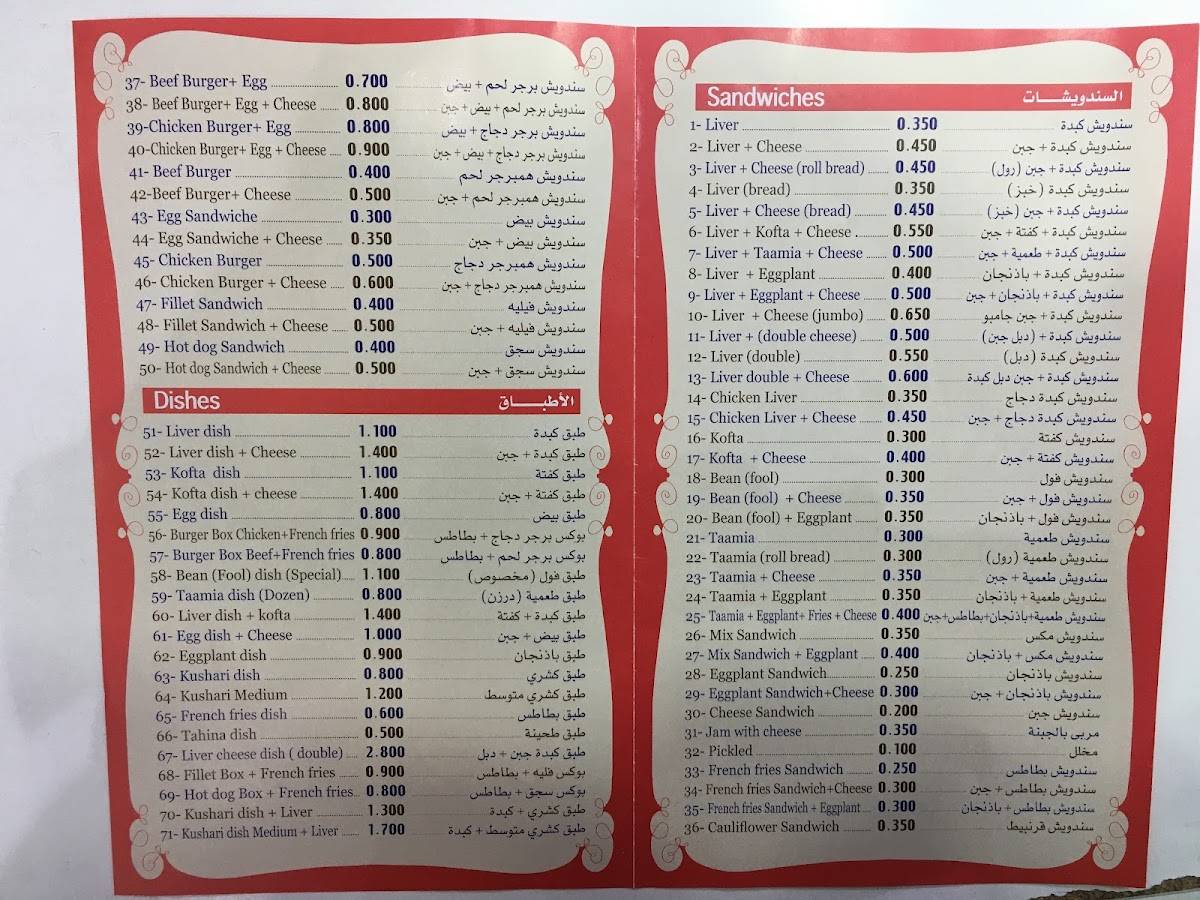 37- Beef Burger+ Egg 0.700 سندويش برجر لحم + بيض
38- Beef Burger+ Egg + Cheese 0.800 سندويش برجر لحم + بيض + جبن
39-Chicken Burger+ Egg 0.800 سندويش برجر دجاج + بيض
40-Chicken Burger+ Egg + Cheese 0.900 سندويش برجر دجاج + بيض + جبن
41- Beef Burger 0.400 سندويش همبرجر لحم
42-Beef Burger+ Cheese 0.500 سندويش همبرجر لحم + جبن
43- Egg Sandwiche 0.300 سندويش بيض
44- Egg Sandwiche + Cheese 0.350 سندويش بيض + جبن
45- Chicken Burger 0.500 سندويش همبرجر دجاج
46- Chicken Burger + Cheese 0.600 سندويش همبرجر دجاج + جبن
47- Fillet Sandwich 0.400 سندويش فيليه
48- Fillet Sandwich + Cheese 0.500 سندويش فيليه + جبن
49- Hot dog Sandwich 0.400 سندويش سجق
50- Hot dog Sandwich + Cheese 0.500 سندويش سجق + جبن
Dishes الأطباق
51- Liver dish 1.100 طبق كبدة
52- Liver dish + Cheese 1.400 طبق كبدة + جبن
53- Kofta dish 1.100 طبق كفتة
54- Kofta dish + cheese 1.400 طبق كفتة + جبن
55- Egg dish 0.800 طبق بيض
56- Burger Box Chicken+French fries 0.900 بوكس برجر دجاج + بطاطس
57- Burger Box Beef+French fries 0.800 بوكس برجر لحم + بطاطس
58- Bean (Fool) dish (Special) 1.100 طبق فول (مخصوص)
59- Taamia dish (Dozen) 0.800 طبق طعمية (درزن)
60- Liver dish + kofta 1.400 طبق كبدة + كفتة
61- Egg dish + Cheese 1.000 طبق بيض + جبن
62- Eggplant dish 0.900 طبق باذنجان
63- Kushari dish 0.800 طبق كشري
64- Kushari Medium 1.200 طبق كشري متوسط
65- French fries dish 0.600 طبق بطاطس
66- Tahina dish 0.500 طبق طحينة
67- Liver cheese dish ( double) 2.800 طبق كبدة جبن + دبل
68- Fillet Box + French fries 0.900 بوكس فليه + بطاطس
69- Hot dog Box + French fries 0.800 بوكس سجق + بطاطس
70- Kushari dish + Liver 1.300 طبق كشري + كبدة
71- Kushari dish Medium + Liver 1.700 طبق كشري متوسط + كبدة
Sandwiches السندويشات
1- Liver 0.350 سندويش كبدة
2- Liver + Cheese 0.450 سندويش كبدة + جبن
3- Liver + Cheese (roll bread) 0.450 سندويش كبدة + جبن (رول)
4- Liver (bread) 0.350 سندويش كبدة (خبز)
5- Liver + Cheese (bread) 0.450 سندويش كبدة + جبن (خبز)
6- Liver + Kofta + Cheese 0.550 سندويش كبدة + كفتة + جبن
7- Liver + Taamia + Cheese 0.500 سندويش كبدة + طعمية + جبن
8- Liver + Eggplant 0.400 سندويش كبدة + باذنجان
9- Liver + Eggplant + Cheese 0.500 سندويش كبدة + باذنجان + جبن
10- Liver + Cheese (jumbo) 0.650 سندويش كبدة + جبن جامبو
11- Liver + (double cheese) 0.500 سندويش كبدة + (دبل جبن)
12- Liver (double) 0.550 سندويش كبدة (دبل)
13- Liver double + Cheese 0.600 سندويش كبدة + جبن دبل كبدة
14- Chicken Liver 0.350 سندويش كبدة دجاج
15- Chicken Liver + Cheese 0.450 سندويش كبدة دجاج + جبن
16- Kofta 0.300 سندويش كفتة
17- Kofta + Cheese 0.400 سندويش كفتة + جبن
18- Bean (fool) 0.300 سندويش فول
19- Bean (fool) + Cheese 0.350 سندويش فول + جبن
20- Bean (fool) + Eggplant 0.350 سندويش فول + باذنجان
21- Taamia 0.300 سندويش طعمية
22- Taamia (roll bread) 0.300 سندويش طعمية (رول)
23- Taamia + Cheese 0.350 سندويش طعمية + جبن
24- Taamia + Eggplant 0.350 سندويش طعمية + باذنجان
25- Taamia + Eggplant+ Fries + Cheese 0.400 سندويش طعمية+باذنجان+بطاطس+جبن
26- Mix Sandwich 0.350 سندويش مكس
27- Mix Sandwich + Eggplant 0.400 سندويش مكس + باذنجان
28- Eggplant Sandwich 0.250 سندويش باذنجان
29- Eggplant Sandwich+Cheese 0.300 سندويش باذنجان + جبن
30- Cheese Sandwich 0.200 سندويش جبن
31- Jam with cheese 0.350 مربى بالجبنة
32- Pickled 0.100 مخلل
33- French fries Sandwich 0.250 سندويش بطاطس
34- French fries Sandwich+Cheese 0.300 سندويش بطاطس + جبن
35- French fries Sandwich + Eggplant 0.300 سندويش بطاطس + باذنجان
36- Cauliflower Sandwich 0.350 سندويش قرنبيط